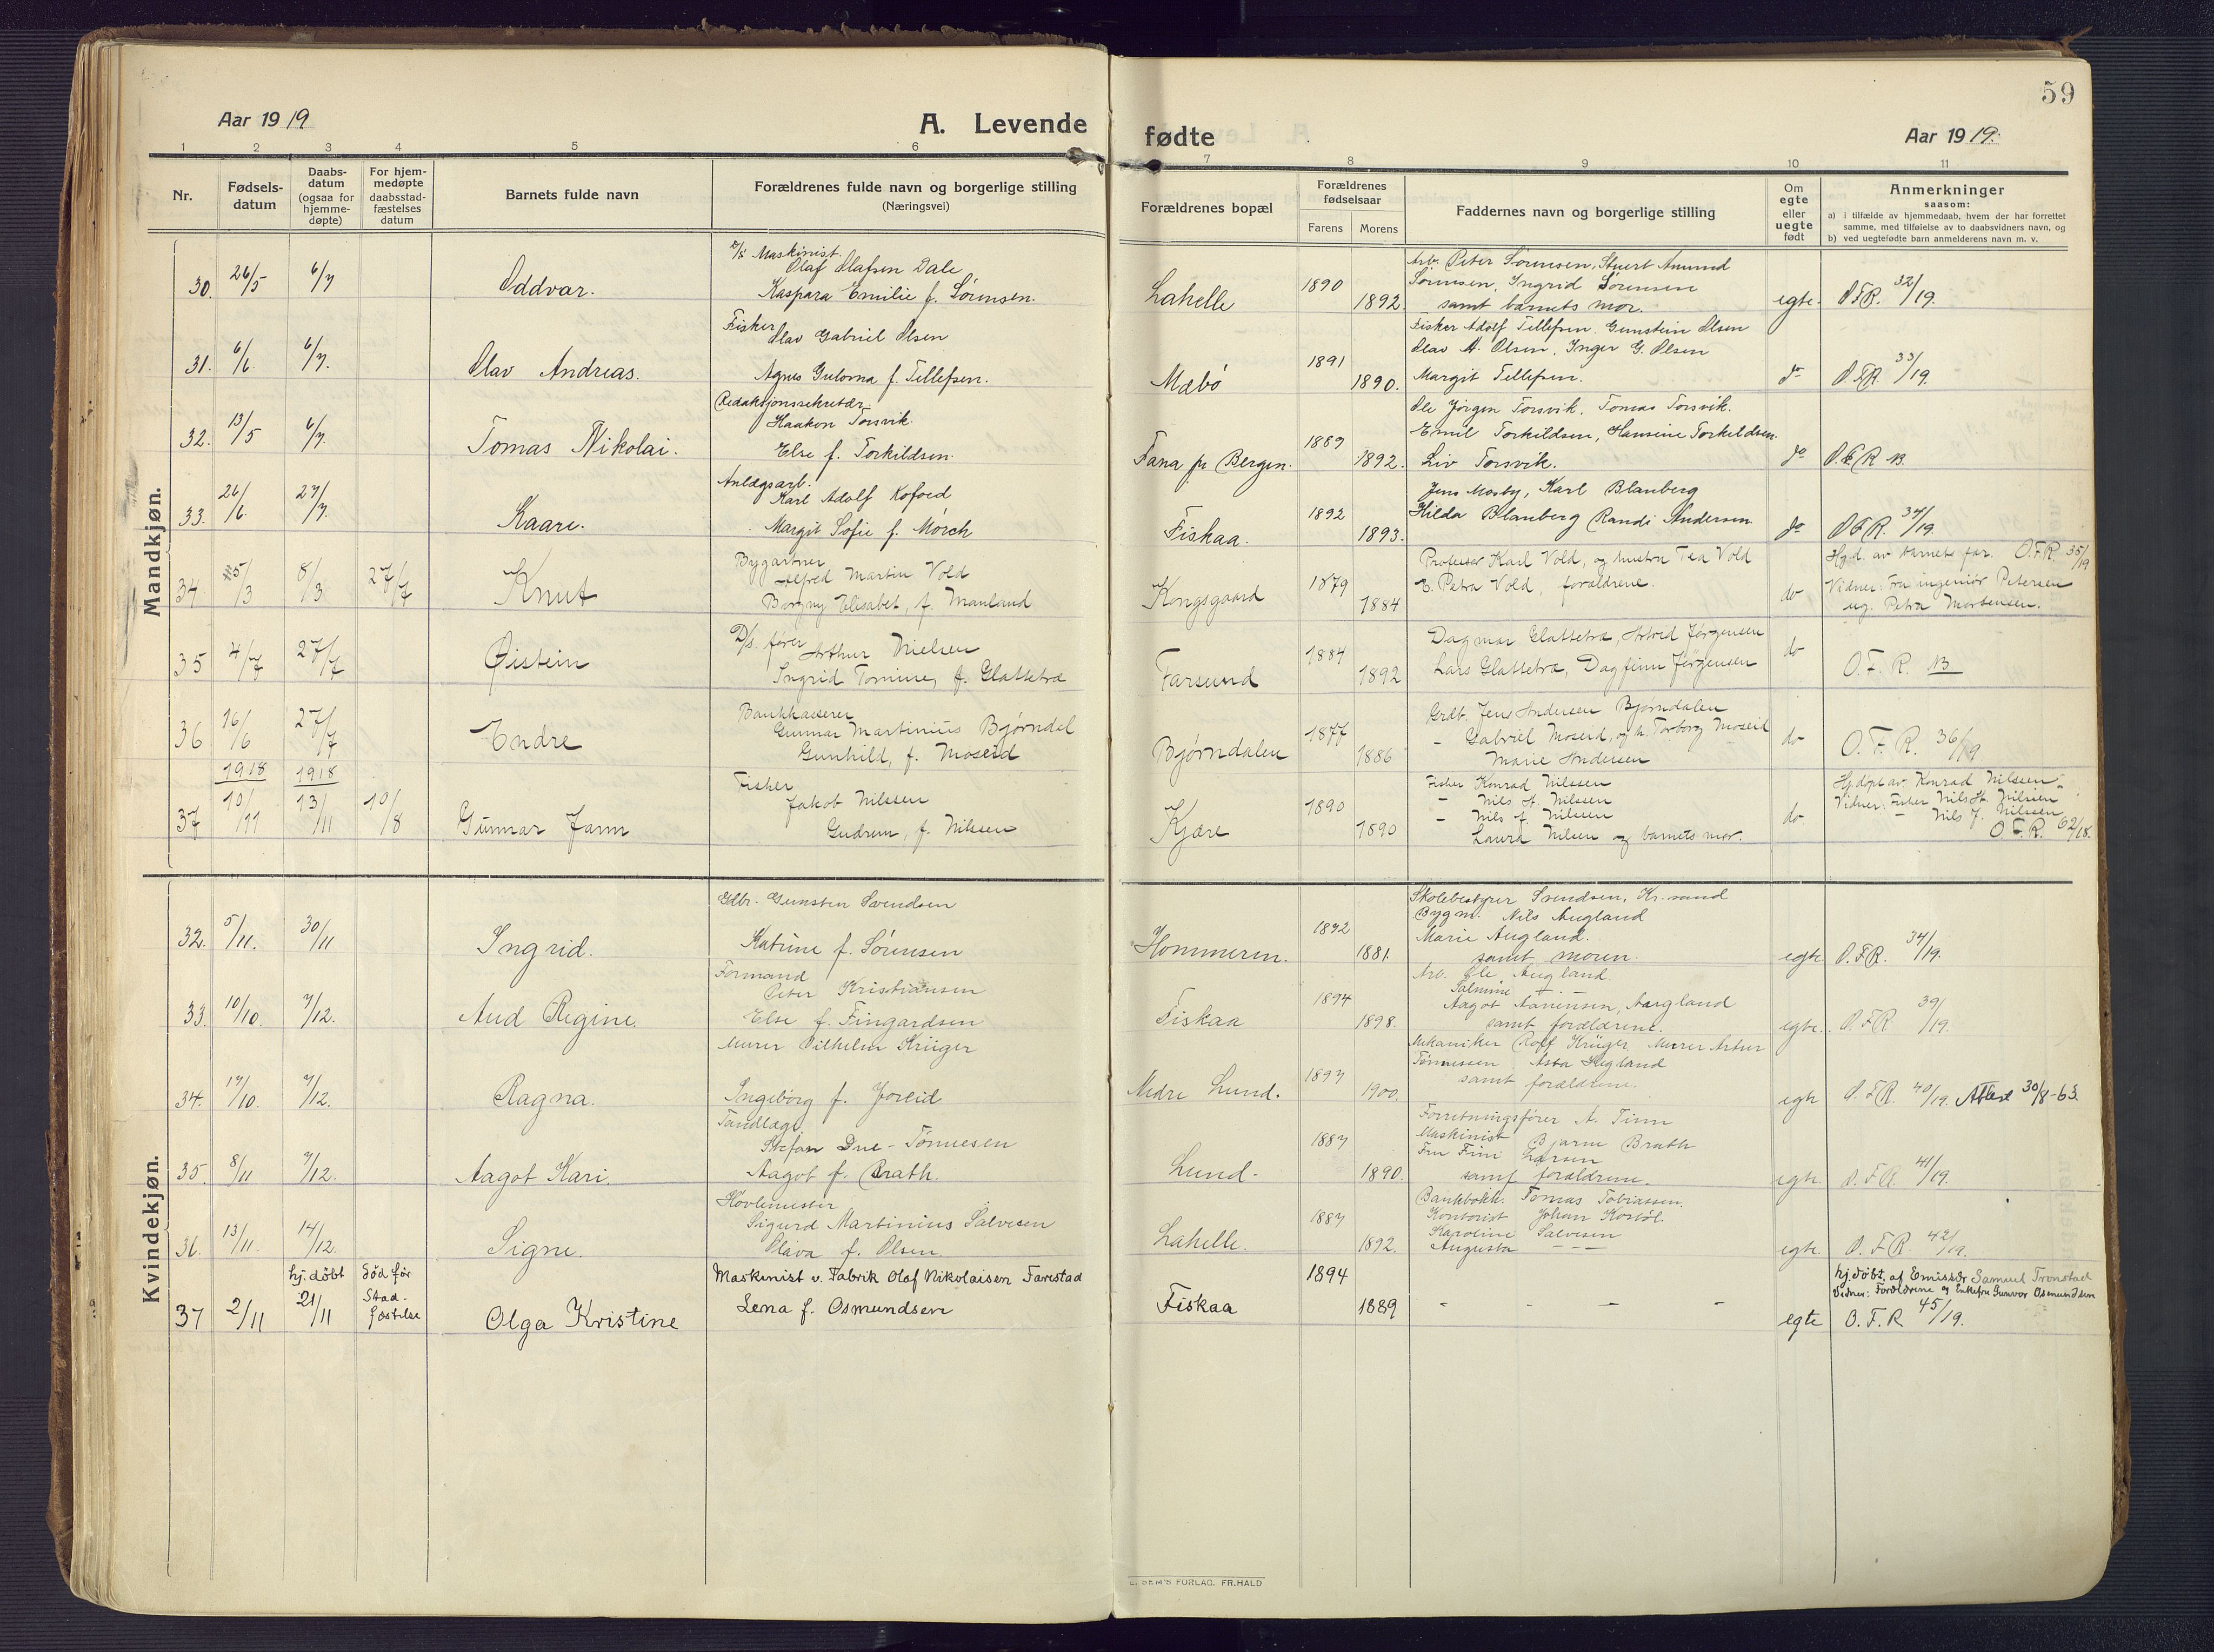 59
Aar 1919
A. Levende fødte
Aar 1919.
1 2 3 4 5 6 7 8 9 10 11
Nr.
Fødsels-
datum
Daabs-
datum
(ogsaa for
hjemme-
døpte)
For hjem-
medøpte
daabsstad-
fæstelses
datum
Barnets fulde navn
Forældrenes fulde navn og borgerlige stilling
(Næringsvei)
Forældrenes bopæl
Forældrenes
fødselsaar
Farens Morens
Faddernes navn og borgerlige stilling
Om
egte
eller
uegte
født
Anmerkninger
saasom:
a) i tilfælde av hjemmedaab, hvem der har forrettet
samme, med tilføielse av to daabsvidners navn, og
b) ved uegtefødte barn anmelderens navn m. v.
Mandkjøn.
30. 26/5 6/7 Oddvar.
Maskinist.
Olaf Olafsen Dale
Kaspara Emilie f. Sørensen.
Lahelle 1890 1892.
Arb. Peter Sørensen, Stuert Amund
Sørensen, Ingrid Sørensen
samt barnets mor.
egte. O.F.R. 32/19.
31. 6/6. 6/7. Olav Andreas.
Fisker
Olav Gabriel Olsen
Agnes Gulorna f. Tellefsen.
Mæbø 1891 1890.
Fisker Adolf Tellefsen. Gunstein Olsen
Olav A. Olsen, Inger G. Olsen
Margit Tellefsen.
do O.F.R. 33/19.
32. 13/5 6/7. Tomas Nikolai.
Redaksjonssekretær.
Haakon Torsvik.
Else f. Torkildsen.
Fana pr Bergen. 1889 1892.
Ole Jørgen Torsvik, Tomas Torsvik.
Emil Torkildsen, Hansine Torkildsen.
Liv Torsvik.
do O.F.R. NB.
33. 26/6. 27/7. Kaare.
Anlægsarb.
Karl Adolf Kofoed
Margit Sofie f. Mørch
Fiskaa. 1892 1893.
Jens Mosby, Karl Blanberg
Hilda Blanberg Randi Andersen
do O.F.R. 34/19.
34 5/3 8/3 27/7 Knut
Bygartner
Alfred Martin Vold
Borgny Elisabet, f. Manland
Kongsgaard 1879 1884
Professor Karl Vold, og hustru Tea Vold
E. Petra Vold, forældrene.
do
Hj.d. av barnets far. O.F.R. 35/19
Vidner: Fru ingeniør Petersen
og Petra Mortensen.
35 4/7 27/7 Øistein
D/s. fører Arthur Nielsen
Ingrid Tomine, f. Glattetre
Farsund 1884 1892
Dagmar Glattetre, Astrid Jørgensen
Lars Glattetre, Dagfinn Jørgensen
do O.F.R. NB
36 16/6 27/7 Endre
Bankkasserer
Gunnar Martinius Bjørndal
Gunhild, f. Moseid
Bjørndalen 1877 1886
Grdb. Jens Andersen Bjørndalen
- Gabriel Moseid, og h. Torborg Moseid
Marie Andersen
do O.F.R. 36/19
1918 1918
37 10/11 13/11 10/8 Gunnar Jarm
Fisker
Jakob Nilssen
Gudrun, f. Nilssen
Kjære 1890 1890
Fisker Konrad Nilssen
- Nils H. Nilssen
- Nils J. Nilssen
Laura Nilsen og barnets mor.
do
Hj.døpt av Konrad Nilssen
Vidner: Fisker Nils H. Nilssen
- Nils J. Nilssen
O.F.R. 62/18.
Kvindekjøn.
32. 5/11. 30/11 Ingrid.
Gdbr. Gunsten Svendsen
Katrine f. Sørensen
Hommeren. 1892 1881.
Skolebestyrer Svendsen, Kr.sand
Bygm. Nils Augland
Marie Augland.
samt moren.
egte O.F.R. 34/19.
33. 10/10. 7/12. Aud Regine.
Formand
Peter Kristiansen
Else f. Fingardsen
Fiskaa 1894 1898.
Arb. Ole Augland
Salmine - . -
Aagot Aanensen, Augland
samt forældrene.
egte. O.F.R 39/19.
34. 17/10. 7/12. Ragna.
Murer Vilhelm Krüger
Ingeborg f. Joreid
Nedre Lund. 1897 1900.
Mekaniker Rolf Krüger, Murer Artur
Tønnessen, Asta Hegland
samt forældrene.
egte O.F.R. 40/19. Attest 30/8-63.
35. 8/11 7/12. Aagot Kari.
Tandlæge
Stefan Due-Tønnesen
Aagot f. Brath.
Lund. 1887 1890.
Forretningsfører A. Finn
Maskinist Bjarne Brath
Fru Fini Larsen
samt forældrene.
egte. O.F.R. 41/19.
36. 13/11. 14/12. Signe.
Høvlemester
Sigurd Martinius Salvesen
Olava f. Olsen
Lahelle. 1887 1892.
Bankbokh. Tomas Tobiassen.
Kontorist Johan Kostøl.
Karoline Salvesen
Augusta - - -
egte. O.F.R. 42/19.
37 2/11 hj. døbt 21/11 død før Stad-fæstelse Olga Kristine
Maskinist v. Fabrik Olaf Nikolaisen Farestad
Lena f. Osmundsen
Fiskaa 1894 1889 - - - -
egte
hj.døbt, af Emissær Samuel Tronstad
Vidner: Forældrene og Enkefru Gunvor Osmundsen
O.F.R 45/19.
E. SEM'S FORLAG. FR.HALD